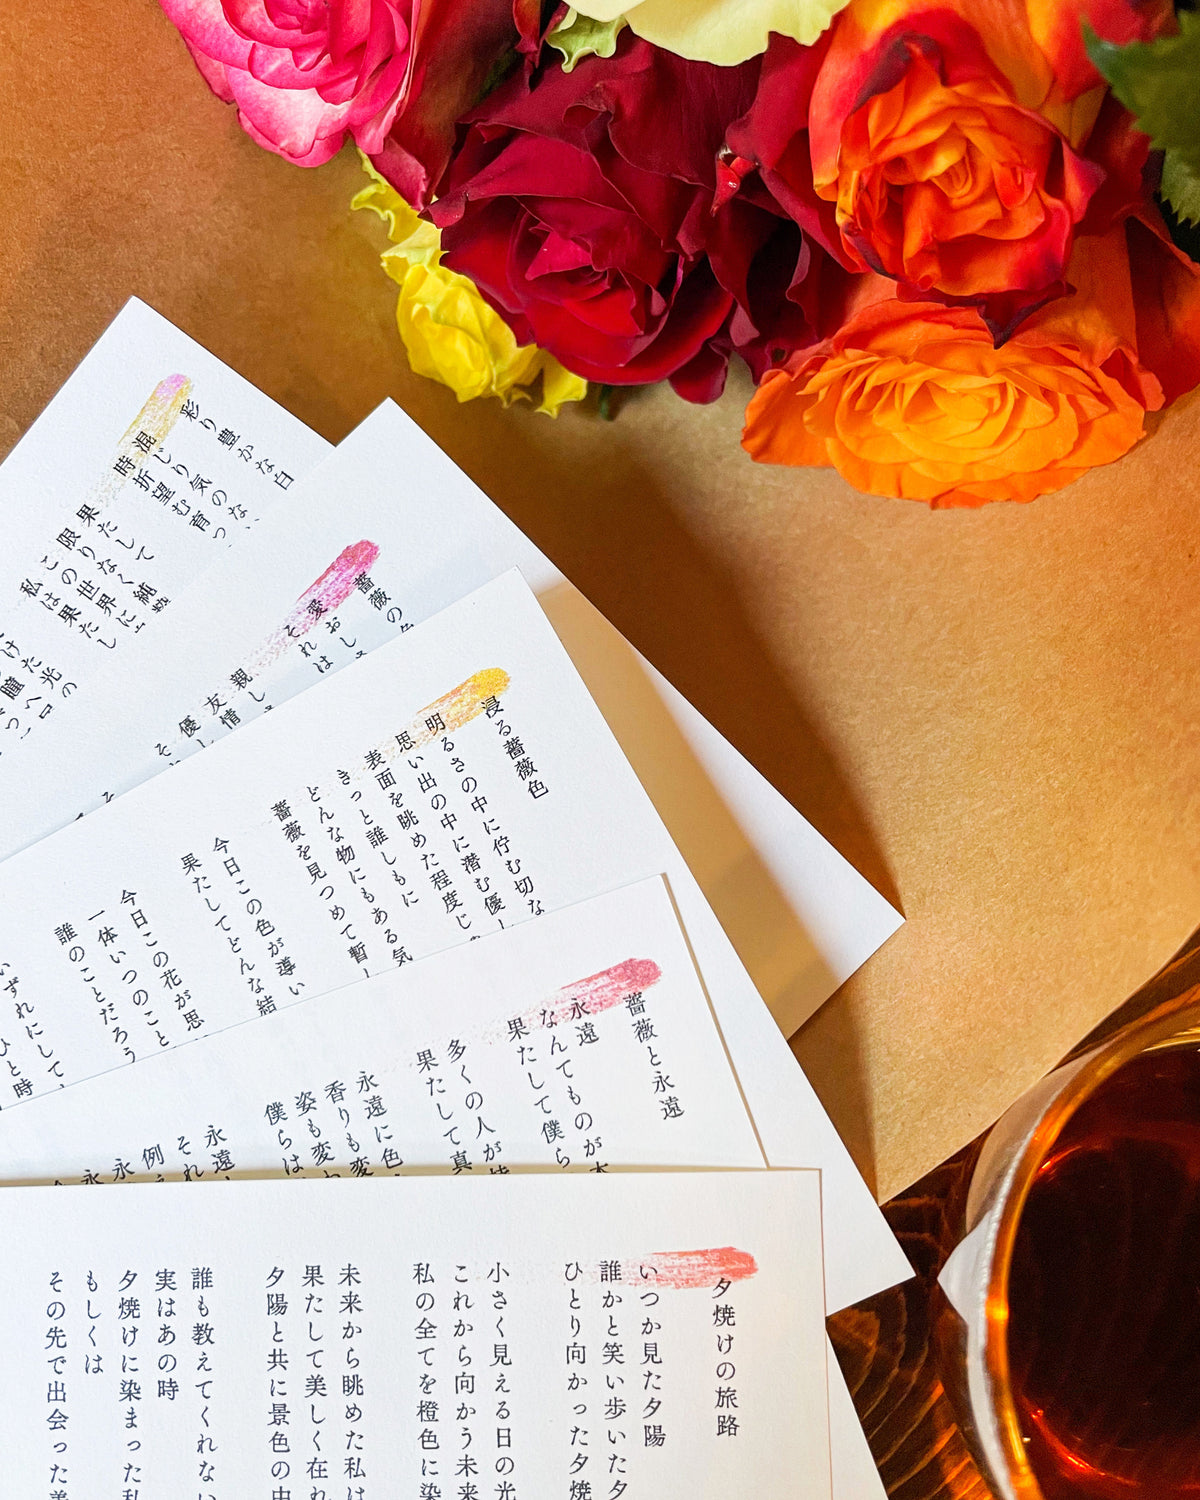 彩り豊かな白
混じり気のない
時折望む育つ
果たして純
限りなく
この世界に
私は果たし
薔薇の
愛おし
それは
親し
友情
優し
浸る薔薇色
明るさの中に佇む切な
思い出の中に潜む優し
表面を眺めた程度じ
きっと誰しもに
どんな物にもある気
薔薇を見つめて暫し
今日この色が導い
果たしてどんな結
今日この花が思
一体いつのこと
誰のことだろう
いずれにして
ひと時
薔薇と永遠
永遠
なんてものが本
果たして僕ら
多くの人が
果たして真
永遠に色
香りも変
姿も変わ
僕らは
永遠
それ
例え
永
夕焼けの旅路
いつか見た夕陽
誰かと笑い歩いた夕
ひとり向かった夕焼
小さく見える日の光
これから向かう未来
私の全てを橙色に染
未来から眺めた私は
果たして美しく在れ
夕陽と共に景色の中
誰も教えてくれない
実はあの時
夕焼けに染まった私
もしくは
その先で出会った美